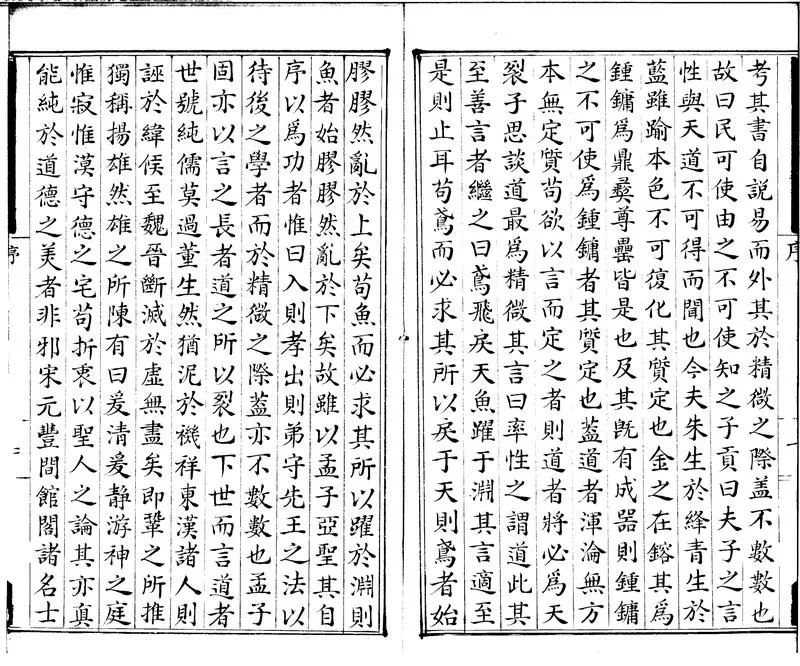 考其書自說易而外其於精微之際盖不數數也
故曰民可使由之不可使知之子貢曰夫子之言
性與天道不可得而聞也今夫朱生於絳青生於
藍雖踰本色不可復化其質定也金之在鎔其爲
鍾鏞爲鼎彞尊罍皆是也及其既有成器則鍾鏞
之不可使爲鍾鏞者其質定也蓋道者渾淪無方
本無定質苟欲以言而定之者則道者將必爲天
裂子思談道最爲精微其言曰率性之謂道此其
至善言者繼之曰鳶飛戾天魚躍于淵其言適至
是則止耳苟鳶而必求其所以戾于天則鳶者始
膠膠然亂於上矣苟魚而必求其所以躍於淵則
魚者始膠膠然亂於下矣故雖以孟子亞聖其自
序以爲功者惟曰入則孝出則弟守先王之法以
待後之學者而於精微之際蓋亦不數數也孟子
固亦以言之長者道之所以裂也下世而言道者
世號純儒莫過董生然猶泥於禨祥東漢諸人則
誣於緯候至魏晉斷滅於虛無盡矣即鞏之所推
獨稱揚雄然雄之所陳有曰爰清爰静游神之庭
惟寂惟漠守德之宅苟折衷以聖人之論其亦眞
能純於道德之美者非邪宋元豐間館閣諸名士
序
序
二